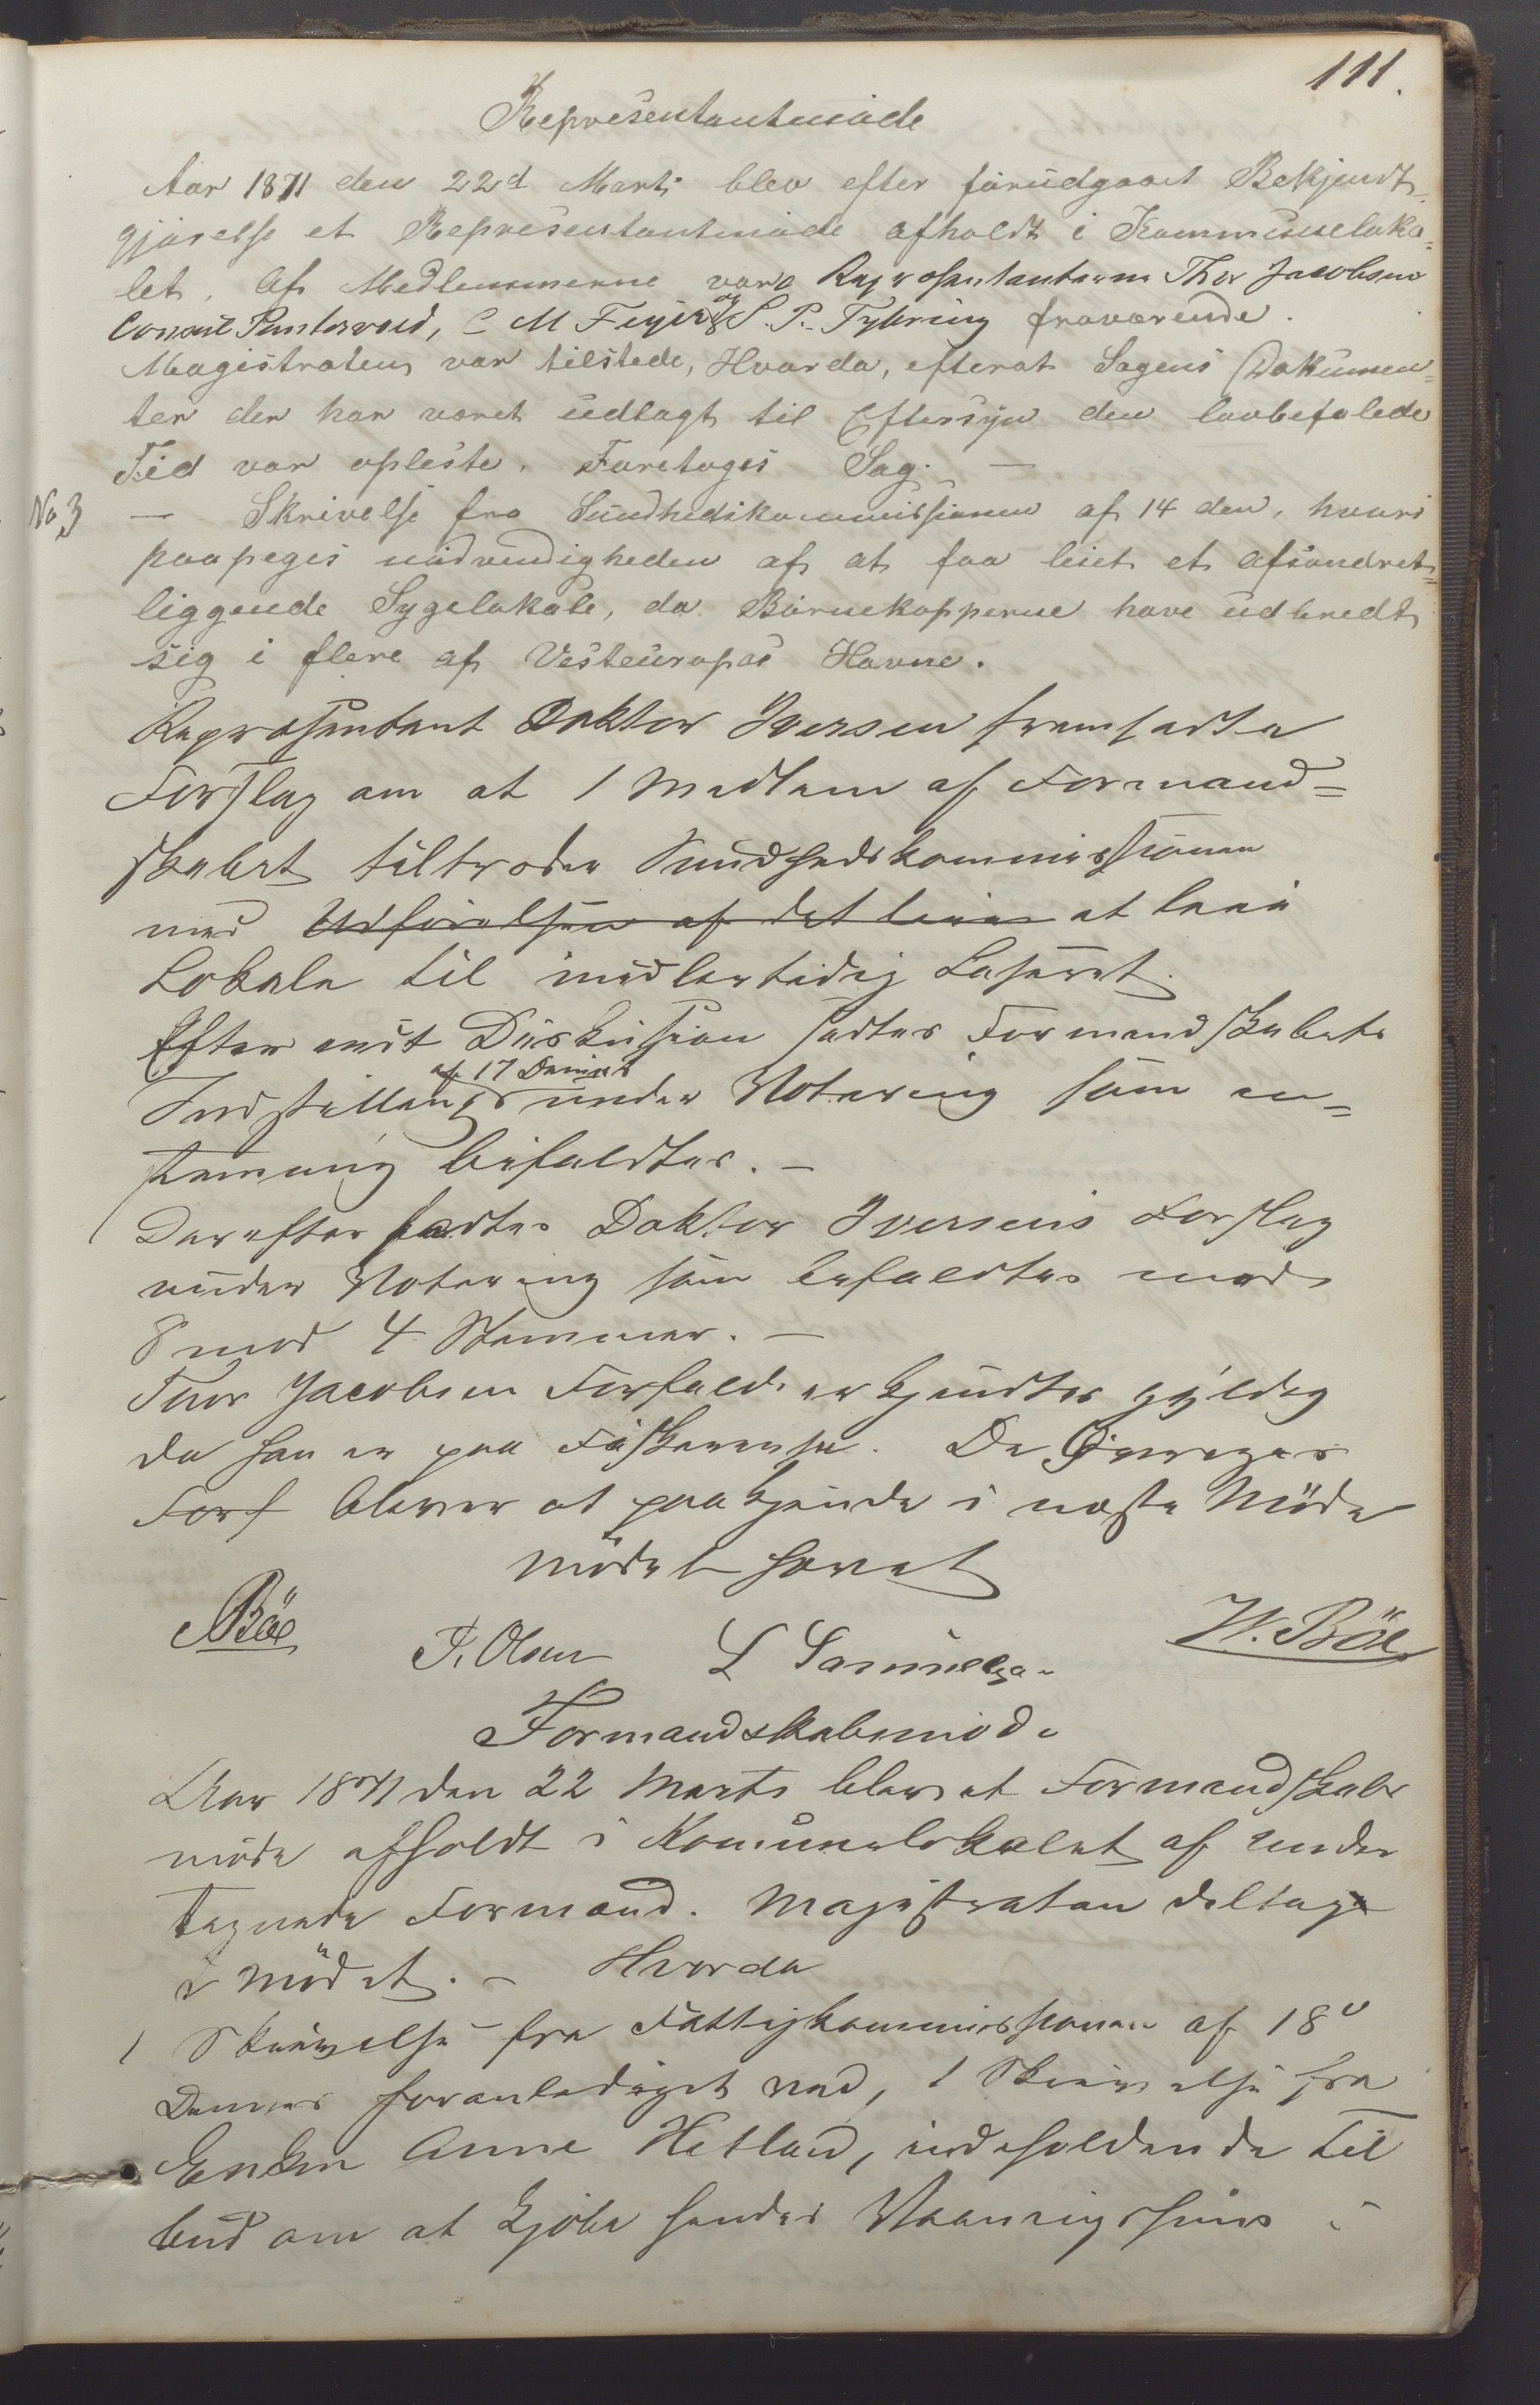 111.
Repræsentantmöde
Aar 1871 den 22d Marts blev efter forudgaaet Bekjendt-
gjørelse et Repræsentantmöde afholdt i Kommuneloka=
let, Af Medlemmerne vare Repræsentanterne Thor Jacobsen
Consul Puntervold, C M Feyer og S. P. Tybring fraværende.
Magistraten var tilstede, Hvorda, efterat Sagens Dokumen=
ter der har været udlagt til Eftersyn den lovbefalede
Tid var opleste, Foretoges Sag. —
No 3 — Skrivelse fra Sundhedskommissionen af 14 den, hvori
paapeges nødvendigheden af at faa leiet et afsondret=
liggende Sygelokale, da Börnekopperne have udbredt
sig i flere af Vesteuropas Havne.
Repræsentant Doktor Iversen fremsatte
Forslag om at 1 Medlem af Formand=
skabet tiltræder Sundhedskommissionen
med Udförelsen af det leie at leie
Lokale til midlertidig Lasaret.
Efter endt Diskussion sattes Formandskabets
af 17 Dennes
Indstilling under Votering som en=
stemmig bifaldtes. —
Derefter sattes Doktor Iversens Forslag
under Votering som bifaldtes med
8 mod 4 Stemmer. —
Thor Jacobsen Forfald erkjendtes gyldig
da han er paa Fiskereise. De Øvriges
Forf bliver at paakjende i næste Möde
Mödet hævet
Böe
T. Olsen L Samuelsen W. Böe
Formandskabsmöde
Aar 1871 den 22 Marts blev et Formandskabs
möde afholdt i Komunelokalet af under
tegnede Formænd. Magistraten deltog
i Mödet. — Hvorda
1 Skrivelse fra Fattigkommissionen af 18de
Dennes foranlediget ved, 1 Skrivelse fra
Enken Anne Hetland, indeholdende Til
bud om at kjöbe hendes Vaaningshuus i